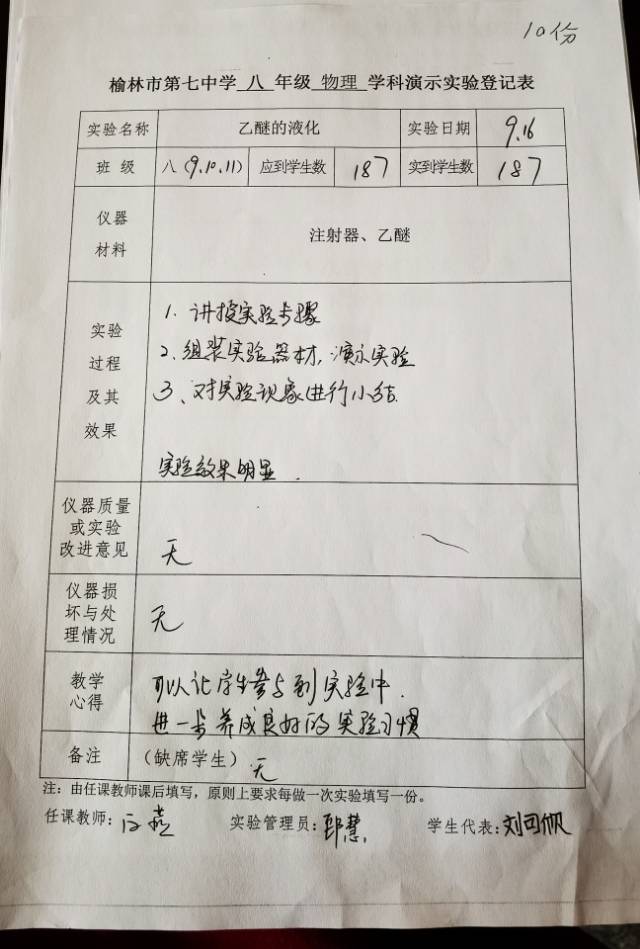 10份
榆林市第七中学 八 年级 物理 学科演示实验登记表
实验名称 乙醚的液化 实验日期 9.16
班 级 八(9.10.11) 应到学生数 187 实到学生数 187
仪器
材料
注射器、乙醚
实验
过程
及其
效果
1. 讲授实验步骤
2、组装实验器材,演示实验
3、对实验现象进行小结.
实验效果明显.
仪器质量
或实验
改进意见
无
仪器损
坏与处
理情况
无
教学
心得
可以让学生参与到实验中.
进一步养成良好的实验习惯
备注 (缺席学生) 无
注:由任课教师课后填写,原则上要求每做一次实验填写一份。
任课教师: 实验管理员: 慧 学生代表:刘可帆